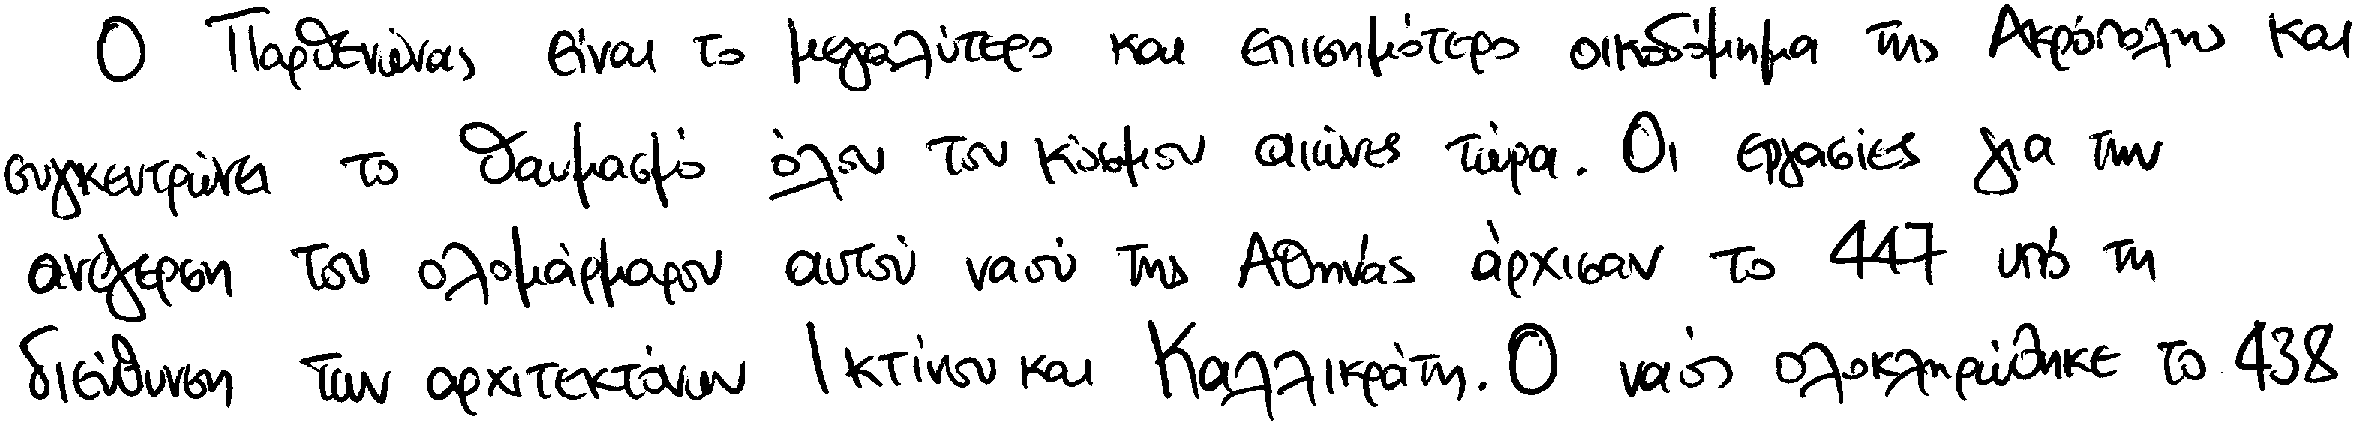 Ο Παρθενώνας είναι το μεγαλύτερο και επισημότερο οικοδόμημα της Ακρόπολης και
συγκεντρώνει το θαυμασμό όλου του κόσμου αιώνες τώρα. Οι εργασίες για την
ανέγερση του ολομάρμαρου αυτού ναού της Αθηνάς άρχισαν το 447 υπό τη
διεύθυνση των αρχιτεκτόνων Ικτίνου και Καλλικράτη. Ο ναός ολοκληρώθηκε το 438